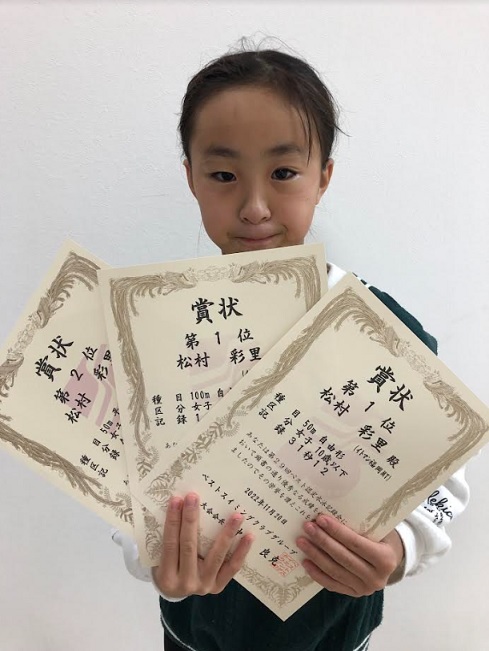 賞状
第2位
松村 彩里
種目 50m
区分 女子
記録
賞状
第1位
松村 彩里
種目 100m 自由
区分 女子
記録 1
賞状
第1位
松村 彩里 殿
種目 50m 自由形
区分 女子 10歳以下
記録
あなたは
おいて頭書の通り優秀なる成績を
ましたのでその栄誉を讃えこれを
2022年11月26日
ベストスイミングクラブグループ
大会会長
良克